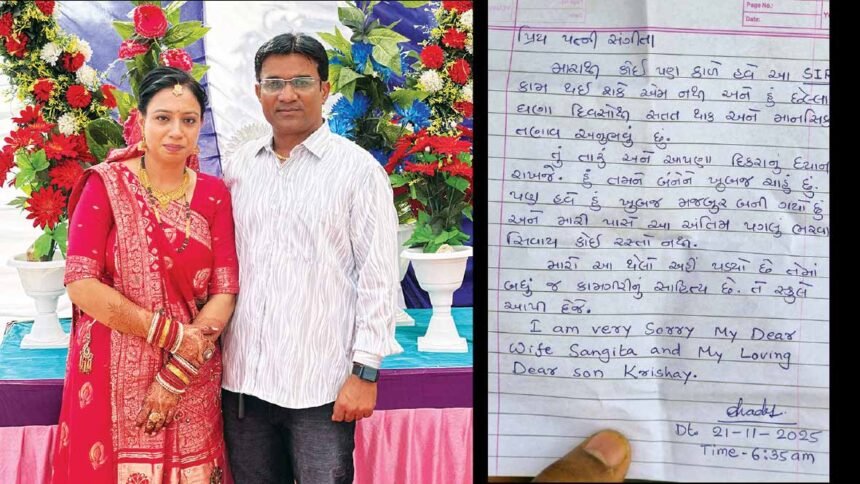 Page No.:
Date:
પ્રિય પત્ની સંગીતા
મારાથી કોઈ પણ કાળે હવે આ SIR
કામ થઈ શકે એમ નથી અને હું છેલ્લા
ઘણા દિવસોથી સતત થાક અને માનસિક
તણાવ અનુભવું છું.
તું તારું અને આપણા દિકરાનું ધ્યાન
રાખજે. હું તમને બંનેને ખુબજ ચાહું છું.
પણ હવે હું ખુબજ મજબુર બની ગયો છું
અને મારી પાસે આ અંતિમ પગલું ભરવા
સિવાય કોઈ રસ્તો નથી.
મારો આ થેલો અહીં પડયો છે તેમાં
બધું જ કામગીરીનું સાહિત્ય છે. તે સ્કુલે
આપી દેજે.
I am very Sorry My Dear
Wife Sangita and My Loving
Dear son Krishay.
Dt. 21-11-2025
Time - 6:35am